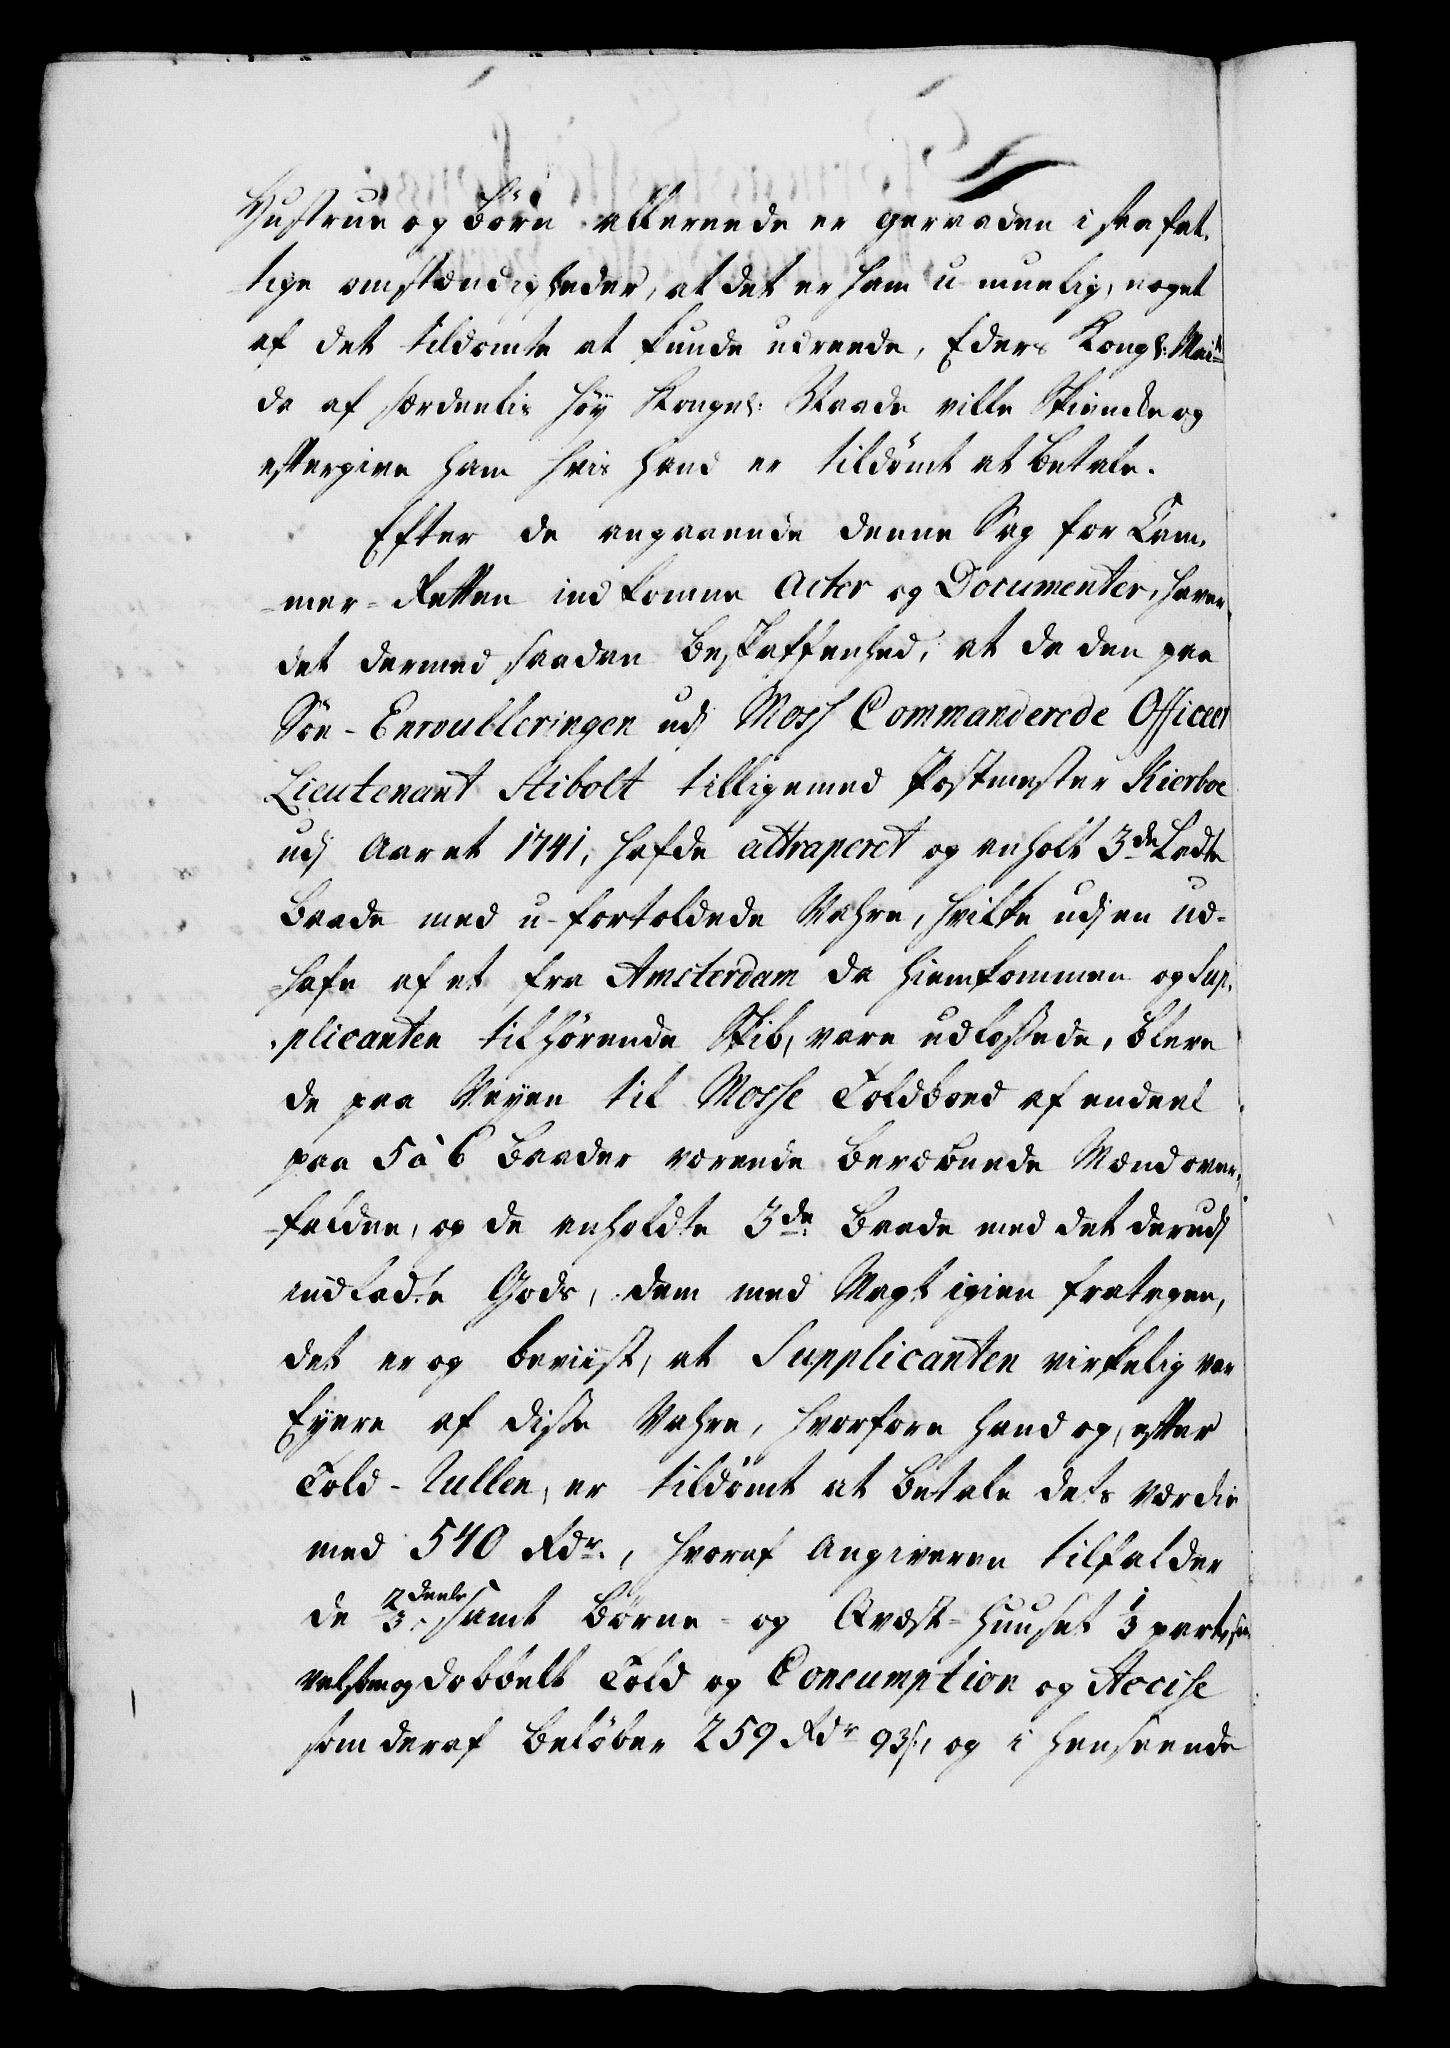 Hustrue og Börn allereede er geraaden i saa fat,
tige omstændigheder, at det er ham u-muelig, noget
af det tildömte at kunde udreede, Eders Kongl: Mai:tt
da af særdeelis höy Kongel: Naade ville Skiencke og
eftergive ham hvis hand er tildömt at betale.
Efter de angaaende denne Sag for Cam,
mer-Retten indkomne Acter og Documenter, haver
det dermed saadan beskaffenhed, at da den paa
Söe-Enroulleringen udj Moss Commanderede Officeer
Lieutenant Stibolt tilligemed Postmester Kierboe
udj Aaret 1741, hafde attraperet og anholt 3de Ladte
Baade med u-fortoldede Vahre, hvilke udj en ud-
hafn af et fra Amsterdam da hiemkommen og Sup,
plicanten tilhörende Skib, vare udlossede, bleve
de paa Veyen til Mosse Toldboed af endeel
paa 5 à 6 Baader værende bevæbnede Mænd over,
falden, og de anholdte 3de Baade med det derudj
indladte Gods, dem med Magt igien fratagen,
det er og beviist, at Supplicanten virkelig var
Eyere af disse Vahre, hvorfore hand og, efter
Told-Rullen, er tildömt at betale dets værdie
med 540 Rdr., hvoraf Angiveren tilfalder
de 2/3 deele samt Börne- og Qvæst-Huuset 1/3 part, saa
velsom og dobbelt Told og Consumption og Accise
som deraf belöber 259 Rdr 93 s:, og i henseende